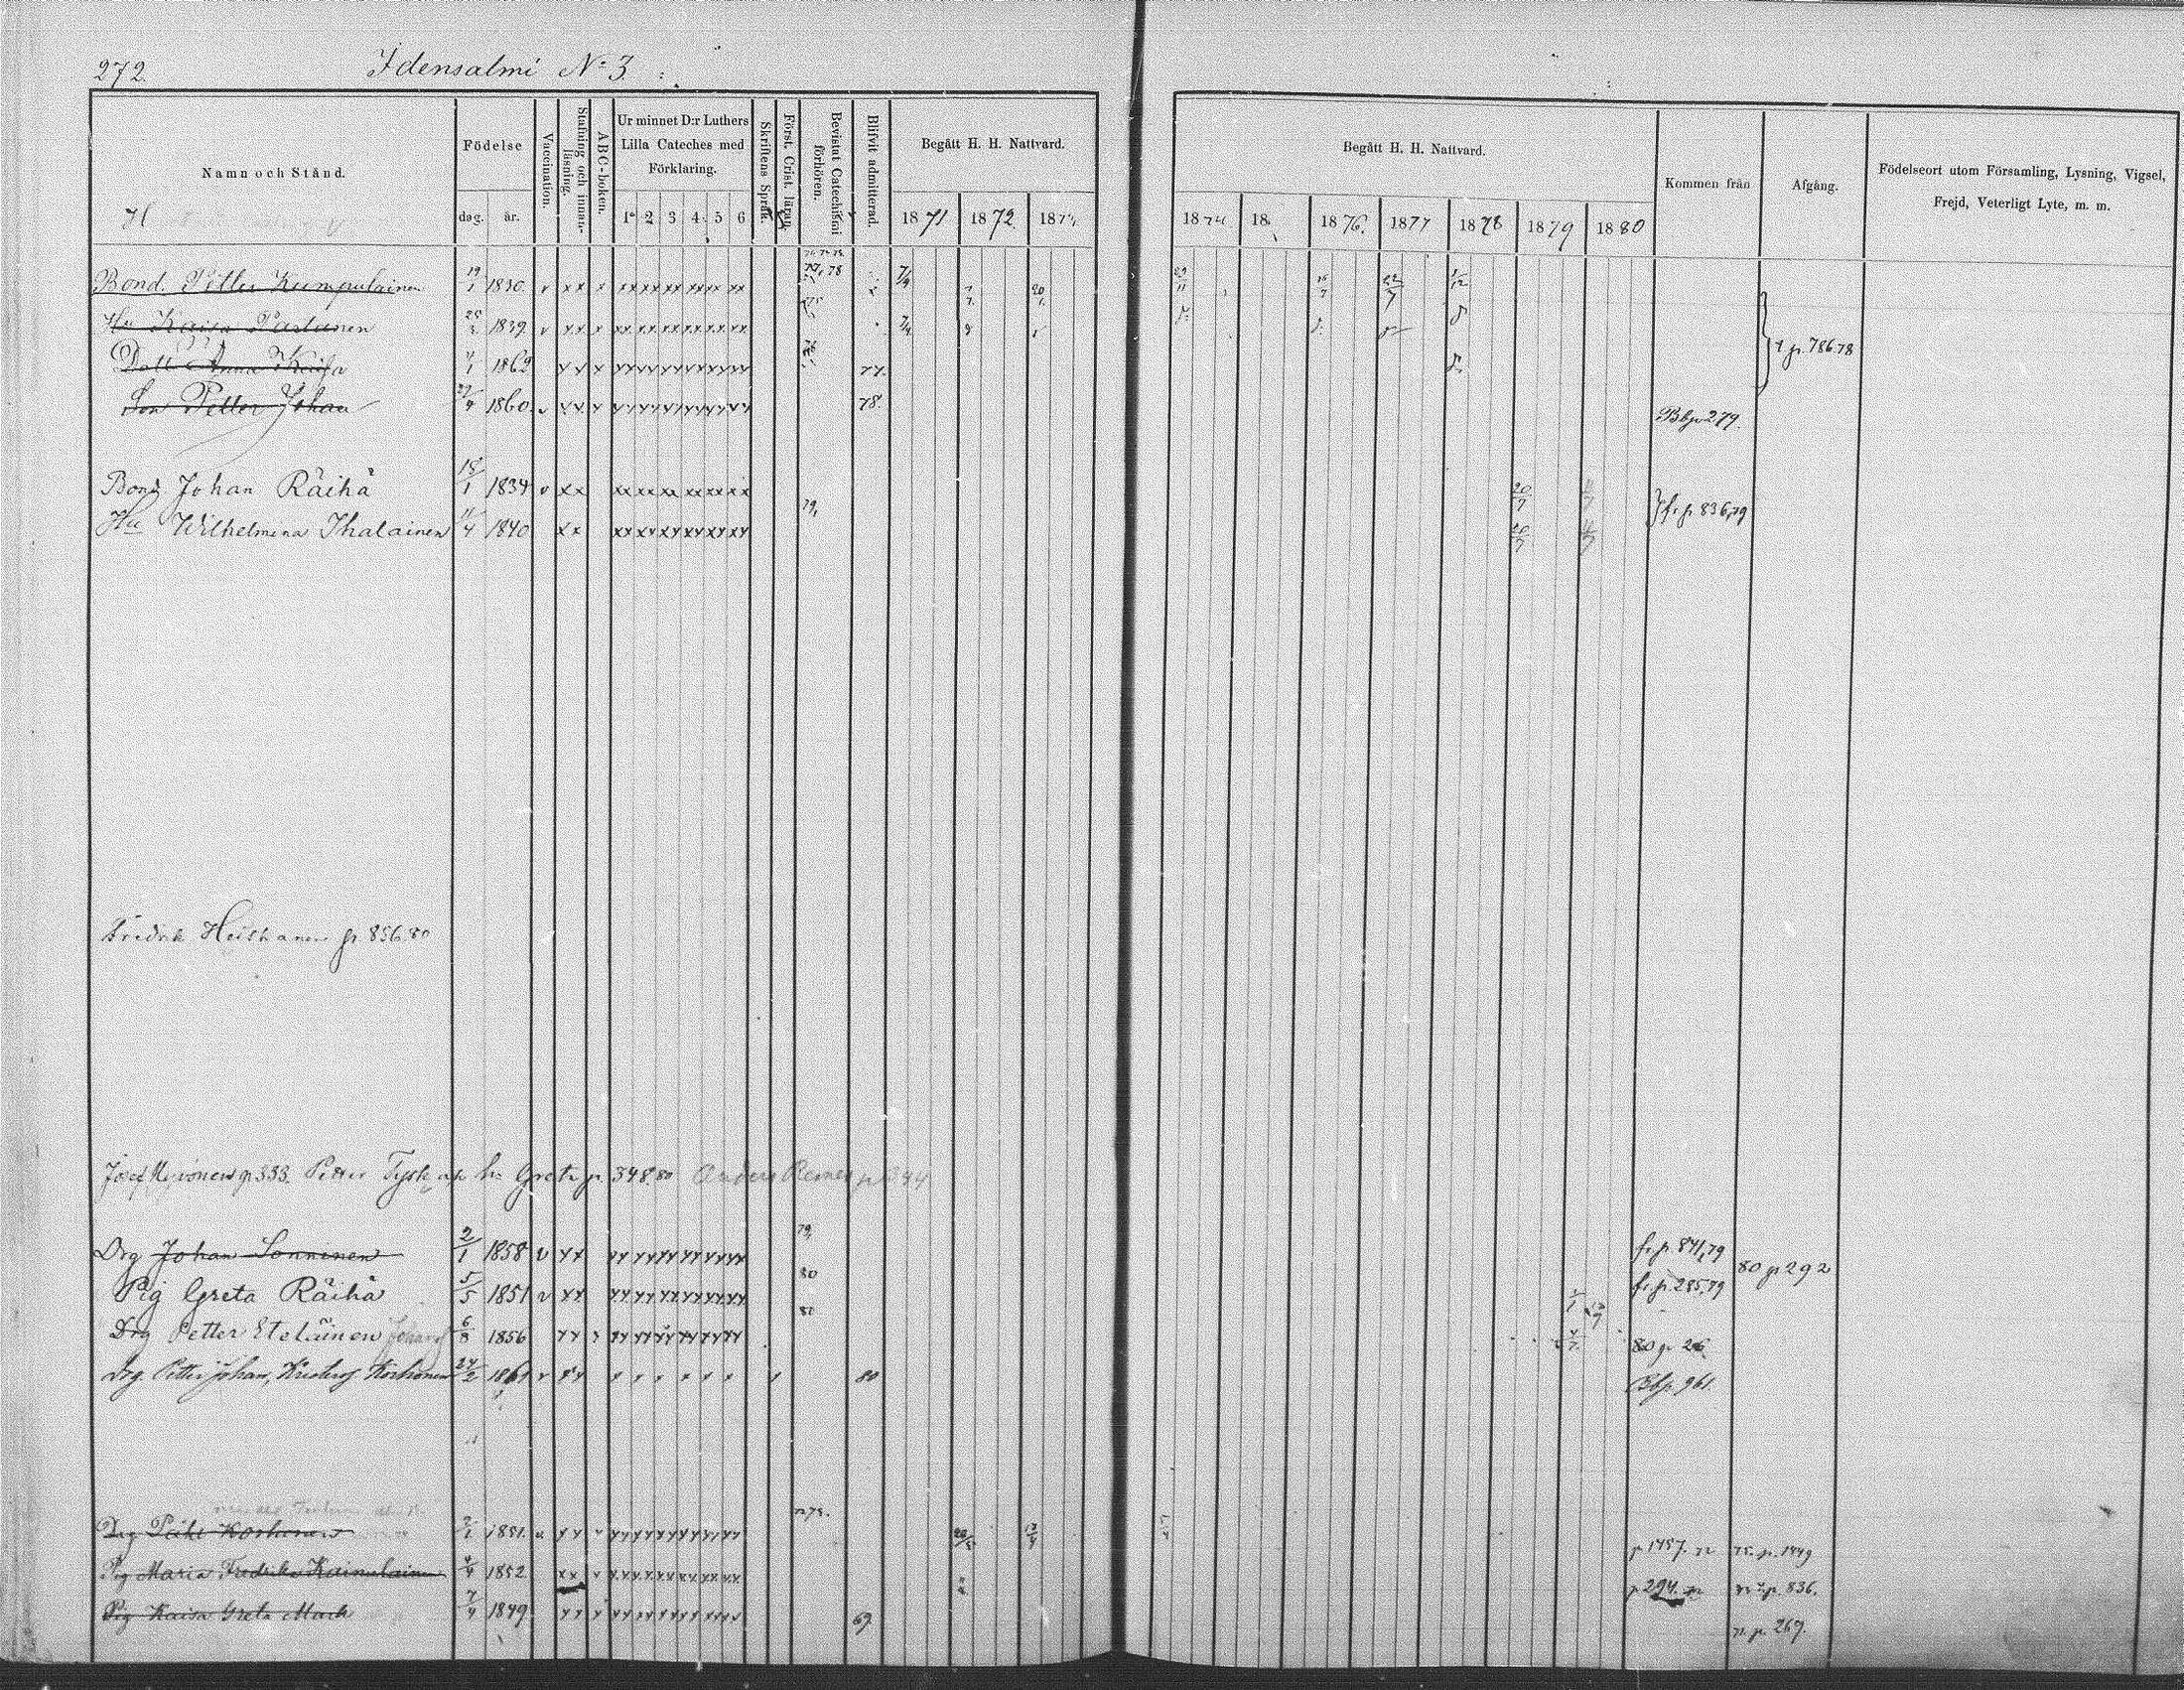 272. Idensalmi No 3.
Namn och Stånd.
Födelse
dag. år.
Vaccination.
Stafning och innan-läsning.
ABC-boken.
Ur minnet D:r Luthers Lilla Cateches med Förklaring.
1 2 3 4 5 6
Skriftens Språk.
Först. Crist. läran.
Bevistat Catechismi förhören.
Blifvit admitterad.
Begått H. H. Nattvard.
1871 1872 187
Begått H. H. Nattvard.
1874 18 1876. 1877 1878 1879 1880
Kommen från
Afgång.
Födelseort utom Församling, Lysning, Vigsel, Frejd, Veterligt Lyte, m. m.
Bond. Petter Kumpulainen 19/1 1830 v xx x xx xx xx xx xx xx 77, 78 7/4 20/1 29/11 15/7 22/7 1/12
Hu Kaisa Partanen 25/3 1839 v xx x xx xx xx xx xx xx 7/4
Dott Anna Kaisa 4/1 1862 xx x xx xx xx xx xx xx 77. p. 786.78
Son Petter Johan 27/4 1860 v xx x xx xx xx xx xx xx 78. Bbp 279.
Bond Johan Räihä 18/1 1834 v xx xx xx xx xx xx xx 20/7
Hu Wilhelmina Ihalainen 11/4 1840 xx xx xx xx xx xx xx 79, 20/7 fr. p. 836,79
Fredrik Heiskanen p 856.80
Josef Hyvönen p 333. Petter Tysk h: Greta p 348.80 Anders Remes p 344
Drg Johan Sonninen 2/1 1858 v xx xx xx xx xx xx xx 79, fr. p. 841,79 80 p 292
Pig Greta Räihä 5/5 1851 v xx xx xx xx xx xx xx 80 fr. p. 285,79
Drg Petter Eteläinen Johans 6/8 1856 xx x xx xx xx xx xx xx 80 p 26
Drg. Petter Johan, Kristers. Korhonen 24/2 1861 v xx x x x x x x 80 Bbp. 961.
Drg Petter Korhonen 2/1 1851. xx x xx xx xx xx xx xx p 1457. 72 75. p. 1449
Pig Maria Fredrika Kainulainen 4/4 1852 xx x xx xx xx xx xx xx p 294. p. 836.
Pig Kaisa Greta Mach 7/4 1849 xx x xx xx xx xx xx xx 69. 71. p. 267.